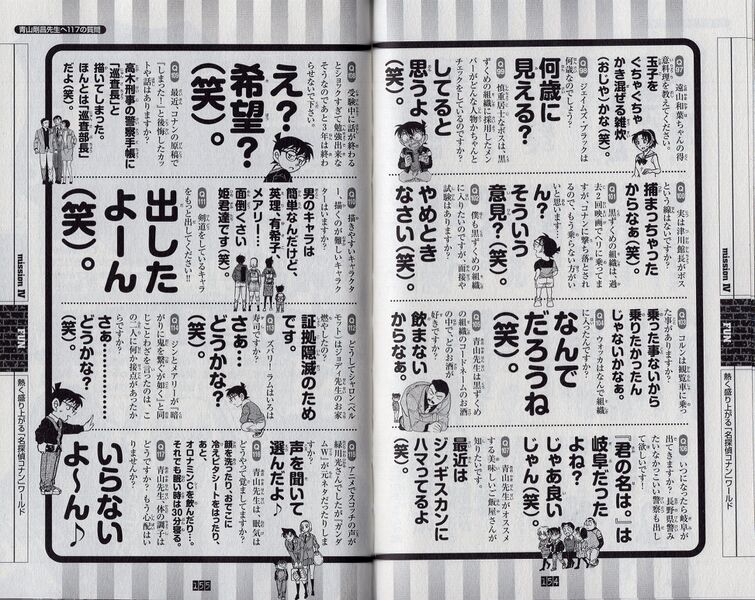 Q97 遠山和葉ちゃんの得
意料理を教えてください。
玉子を
ぐちゃぐちゃ
かき混ぜる雑炊
(おじや)かな(笑)。
Q98 ジェイムズ・ブラックは
何歳なのでしょう?
何歳に
見える?
(笑)。
Q99 慎重居士なボスは、黒
ずくめの組織に採用したメン
バーがどんな人物かちゃんと
チェックをしているのですか?
してると
思うよ
(笑)。
Q100 実は津川館長がボス
という線はないですか?
捕まっちゃった
からなぁ(笑)。
Q101 黒ずくめの組織は、過
去2回映画でヘリに乗ってま
すが、コナンに撃ち落とされ
るので、もう乗らない方がい
いと思います…
ん?
そういう
意見?(笑)。
Q102 僕も黒ずくめの組織
に入りたいのですが、面接や
試験はありますか?
やめとき
なさい(笑)。
Q103 コルンは観覧車に乗っ
た事がありますか?
乗った事ないから
乗りたかったん
じゃないかなぁ。
Q104 ウォッカはなんで組織
に入ったんですか?
なんで
だろうね
(笑)。
Q105 青山先生は黒ずくめ
の組織のコードネームのお酒
の中で、どのお酒が
好きですか?
飲まない
からなぁ。
Q106 いつになったら岐阜が
出てきますか? 長野県警み
たいなかっこいい警察も出し
て欲しいです!
『君の名は。』は
岐阜だった
よね?
じゃあ良い
じゃん(笑)。
Q107 青山先生がオススメ
する美味しいご飯屋さんが
知りたいです。
最近は
ジンギスカンに
ハマってるよ
(笑)。
mission Ⅳ
FUN
熱く盛り上がる『名探偵コナン』ワールド
154
青山剛昌先生へ117の質問
Q108 受験中に話が終わる
とショックすぎて勉強出来な
そうなのであと3年は終わ
らせないで下さい。
え?
希望?
(笑)。
Q109 最近、コナンの原稿で
「しまった!」と後悔したカッ
トや話はありますか?
高木刑事の警察手帳に
「巡査長」と
描いてしまった。
ほんとは「巡査部長」
だよ(笑)。
Q110 描きやすいキャラクタ
ー、描くのが難しいキャラク
ターはいますか?
男のキャラは
簡単なんだけど、
英理、有希子、
メアリー…
面倒くさい
姫君達です(笑)。
Q111 剣道をしているキャラ
をもっと出してください!!
出した
よーん
(笑)。
Q112 どうしてシャロン(ベル
モット)はジョディ先生のお家
燃やしたの?
証拠隠滅のため
です。
Q113 ズバリ! ラムはいろは
寿司ですか?
さぁ…
どうかな?
(笑)。
Q114 ジンとメアリーが「暗
がりに鬼を繋ぐが如く」と同
じことわざを言ったのは、こ
の二人に何か接点があったか
らですか?
さぁ………
どうかな?
(笑)。
Q115 アニメでスコッチの声が
緑川光さんでしたが、「ガンダ
ムW」が元ネタだったりしま
すか?
声を聞いて
選んだよ♪
Q116 青山先生は、眠気は
どうやって覚ましてますか?
顔を洗ったり、おでこに
冷えピタシートをはったり、
あと、
オロナミンCを飲んだり…。
それでも眠い時は30分寝る。
Q117 青山先生、体の調子は
どうですか? もう心配はい
りませんか?
いらない
よ〜ん♪
mission Ⅳ
FUN
熱く盛り上がる『名探偵コナン』ワールド
155